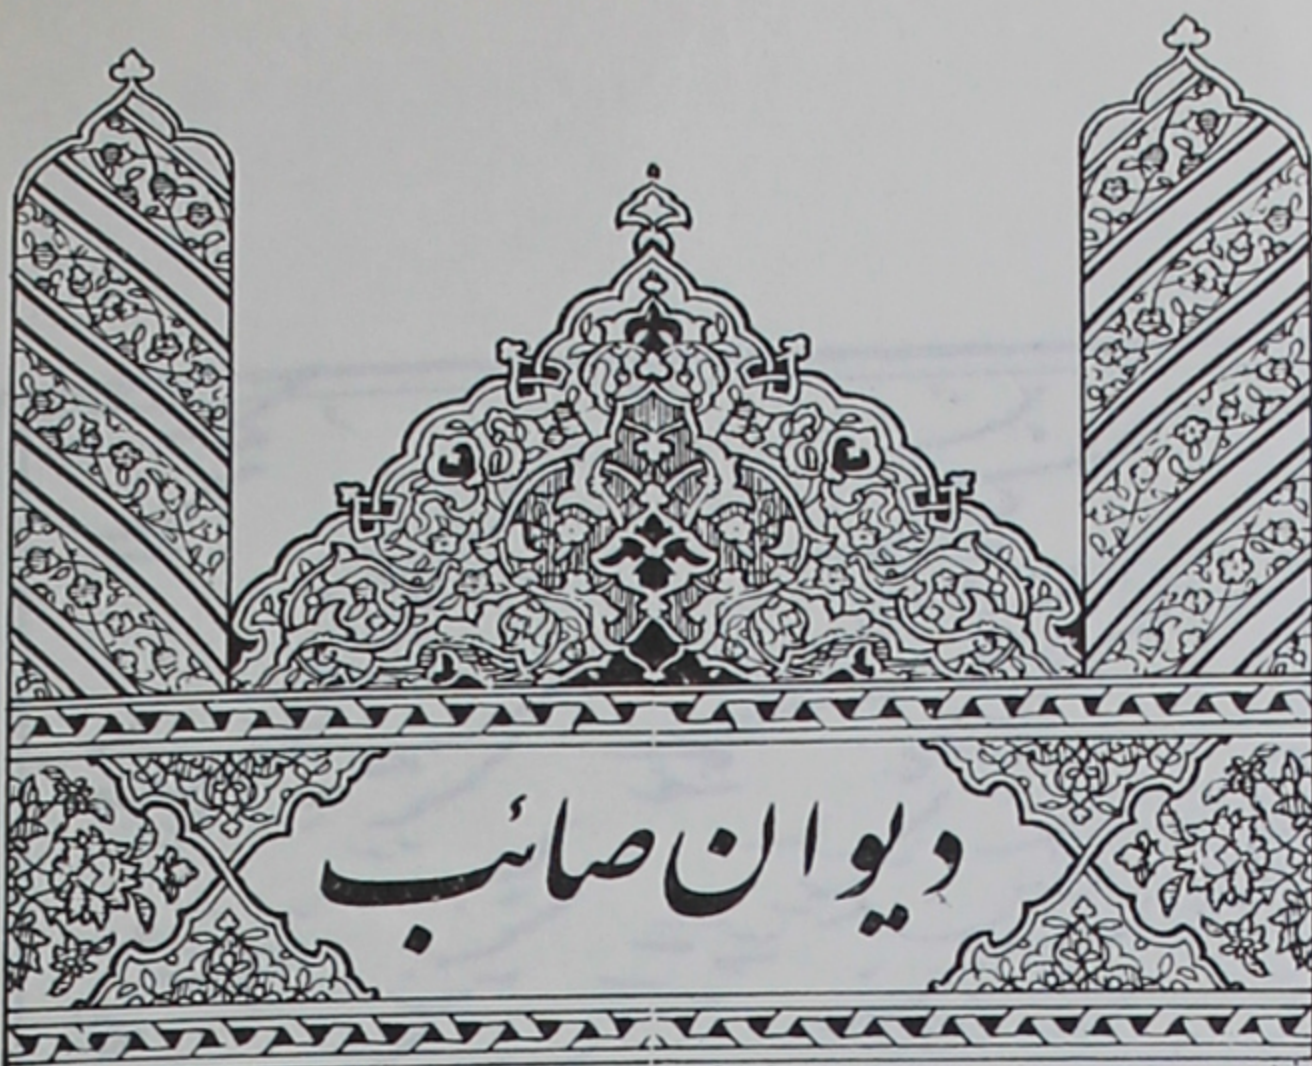 دیوان صائب